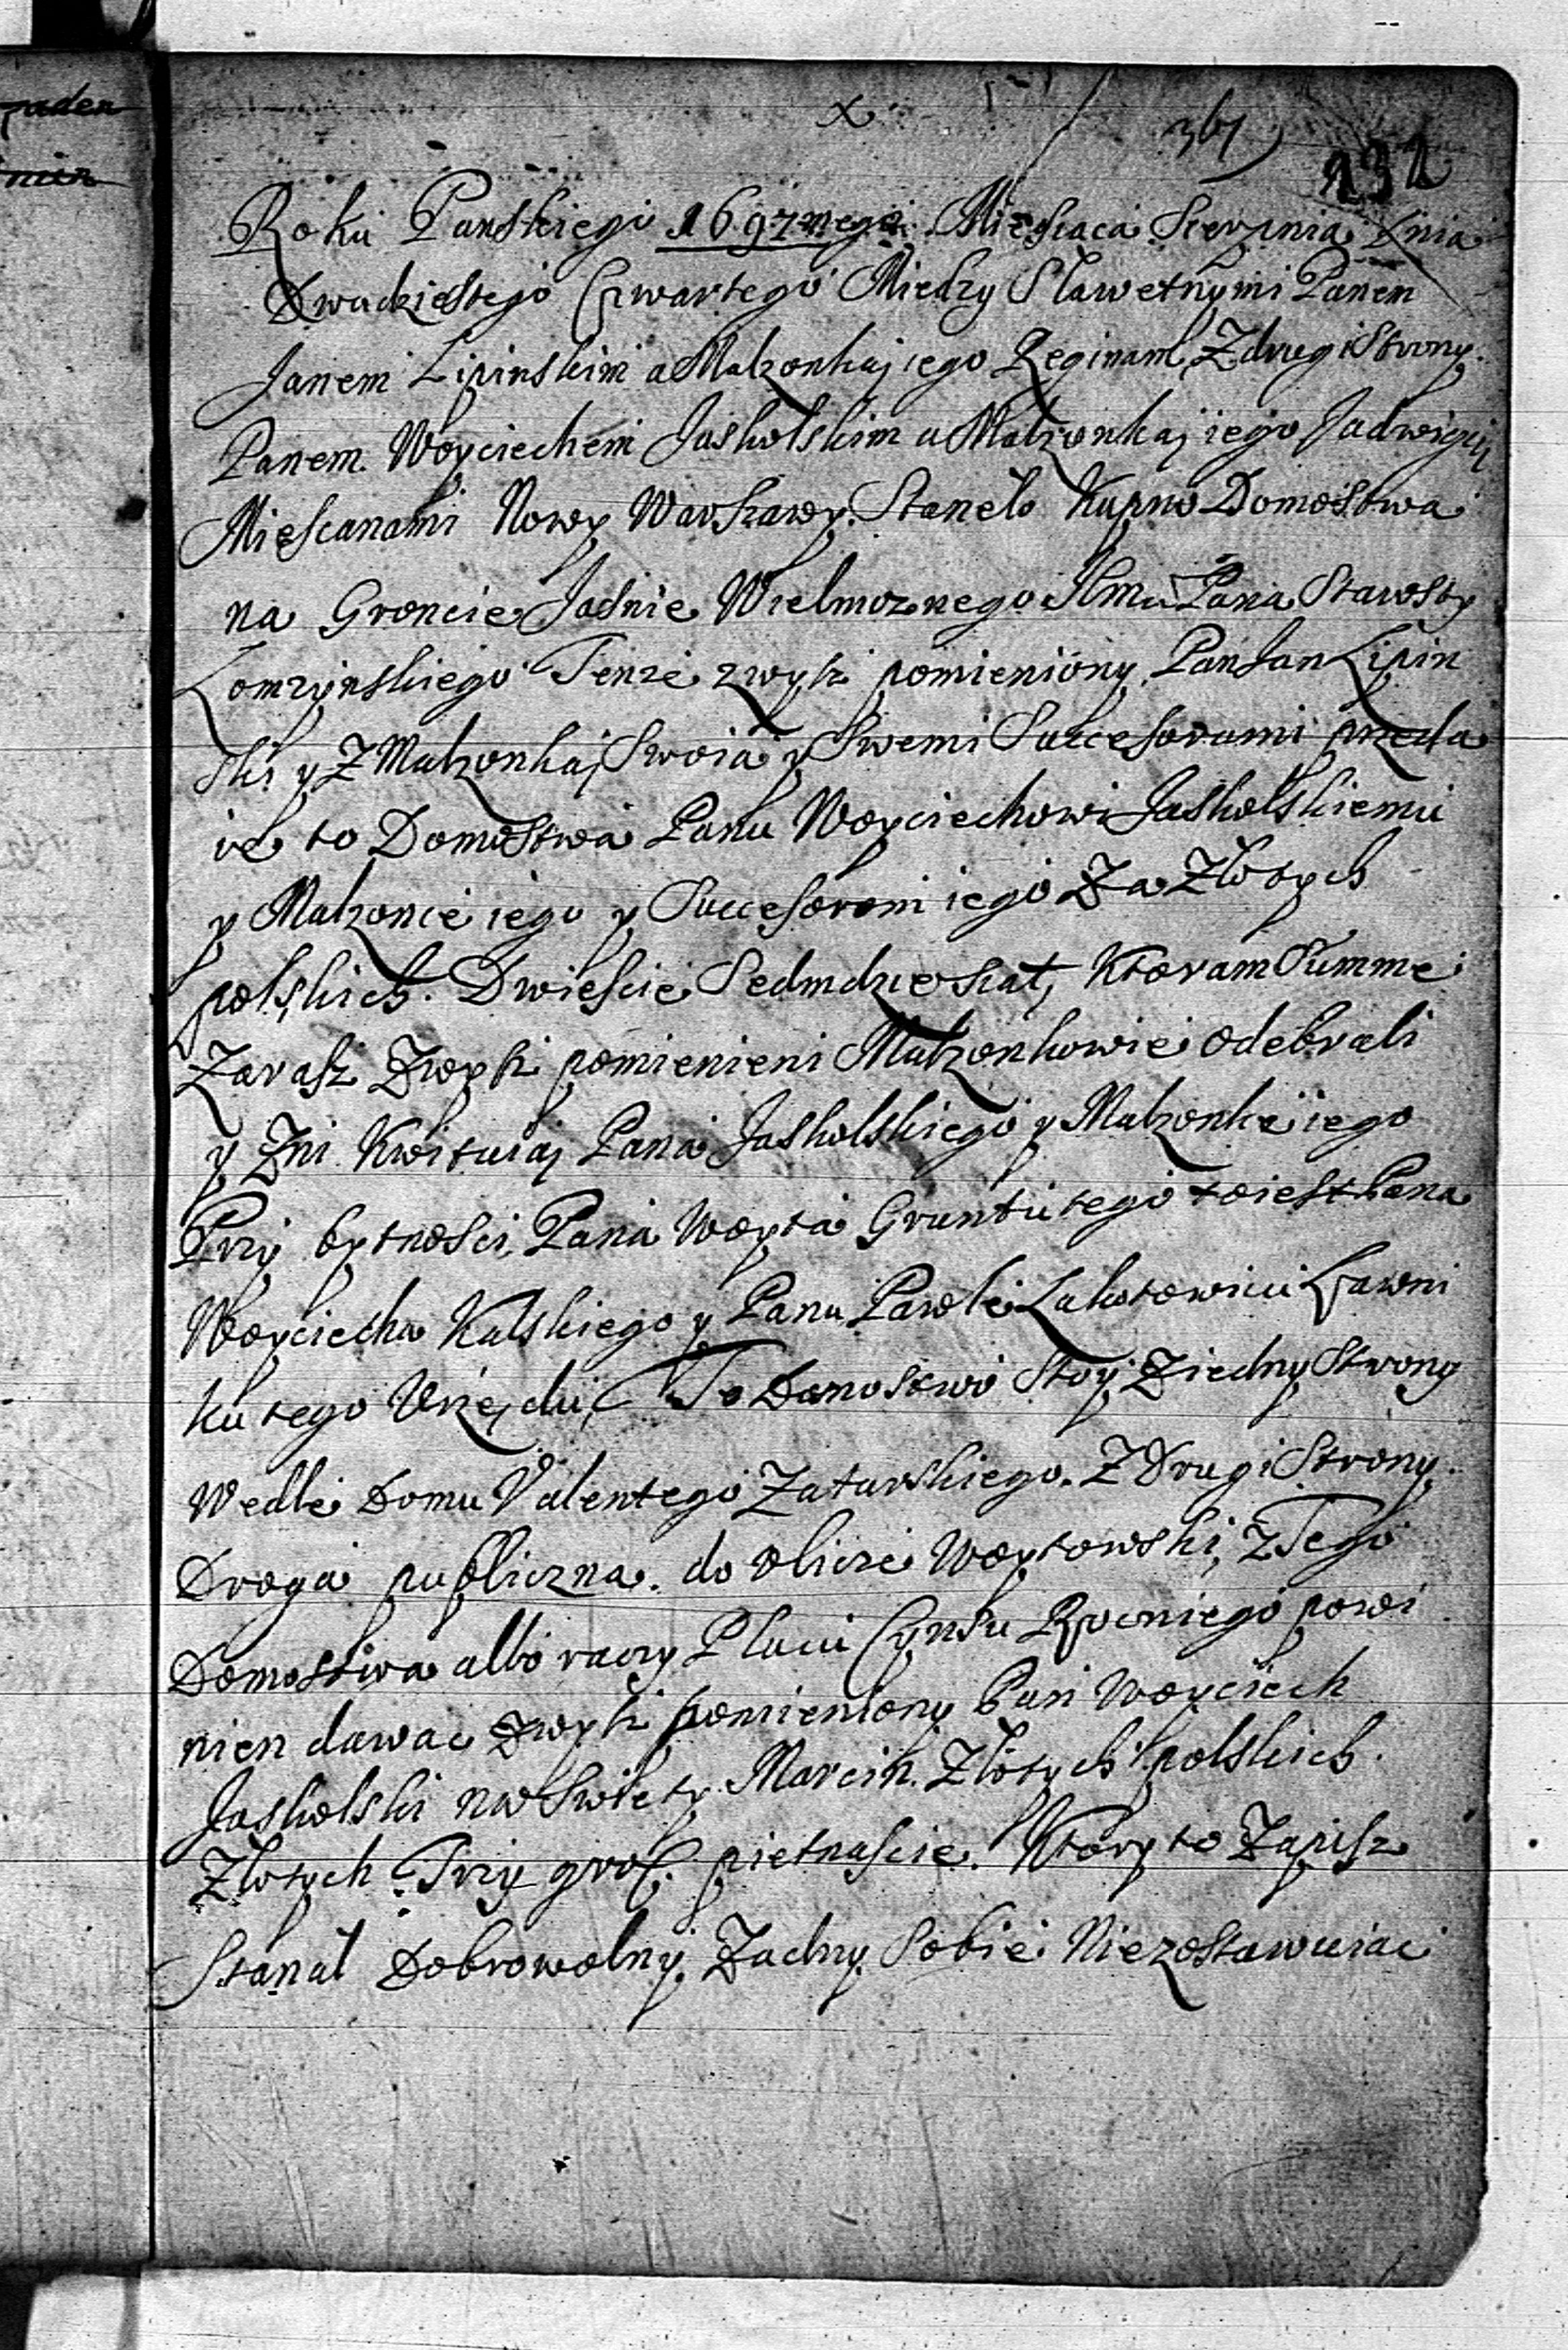 paden
x 367 232
Roku Panskiego 1697mego Miesiaca Sierpnia Dnia
Dwudziestego Czwartego Miedzy Slawetnymi Panem
Janem Lipinskim a Malzonką iego Reginam, Z drugi Strony
Panem Woyciechem Jaskolskim a Malzonką iego Jadwigą
Miescanami Nowy Warszawy. Stanelo Kupno Domostwa
na Groncie Jasnie Wielmoznego Jlmci Pana Starosty
Lomzynskiego Tenze zwysz pomieniony Pan Jan Lipin
ski y Z Malzonką Swoia y Swemi Successorami przeda
ie to Domostwa Panu Woyciechowi Jaskolskiemu
y Malzonce iego y Successorom iego Za Zlotych
polskich. Dwiescie Sedmdziesiat, Ktoram Summe
Zarasz Zwysz pomienieni Malzonkowie odebrali
y Zni Kwituią Pana Jaskolskiego y Malzonke iego
Przy bytnosci Pana Woyta Gruntu tego to iest Pana
Woyciecha Kulskiego y Panu Pawle Lakotowicu Lawni
ku tego Urzędu, To Domostwo Stoy Ziedny Strony
Wedle Domu Valentego Zatarskiego. Z Drugi Strony
Droga publiczna. do Ulice Woytowski, Z Tego
Domostwa albo raczy Placu Cynsu Rocniego powi
nien dawac Zwysz pomieniony Pan Woyciech
Jaskolski na Swiety Marcin. Zlotych polskich.
Zlotych Trzy gros. pietnascie. Ktory to Zapisz
Stanal Dobrowolny. Zadny Sobie Niezostawuiac